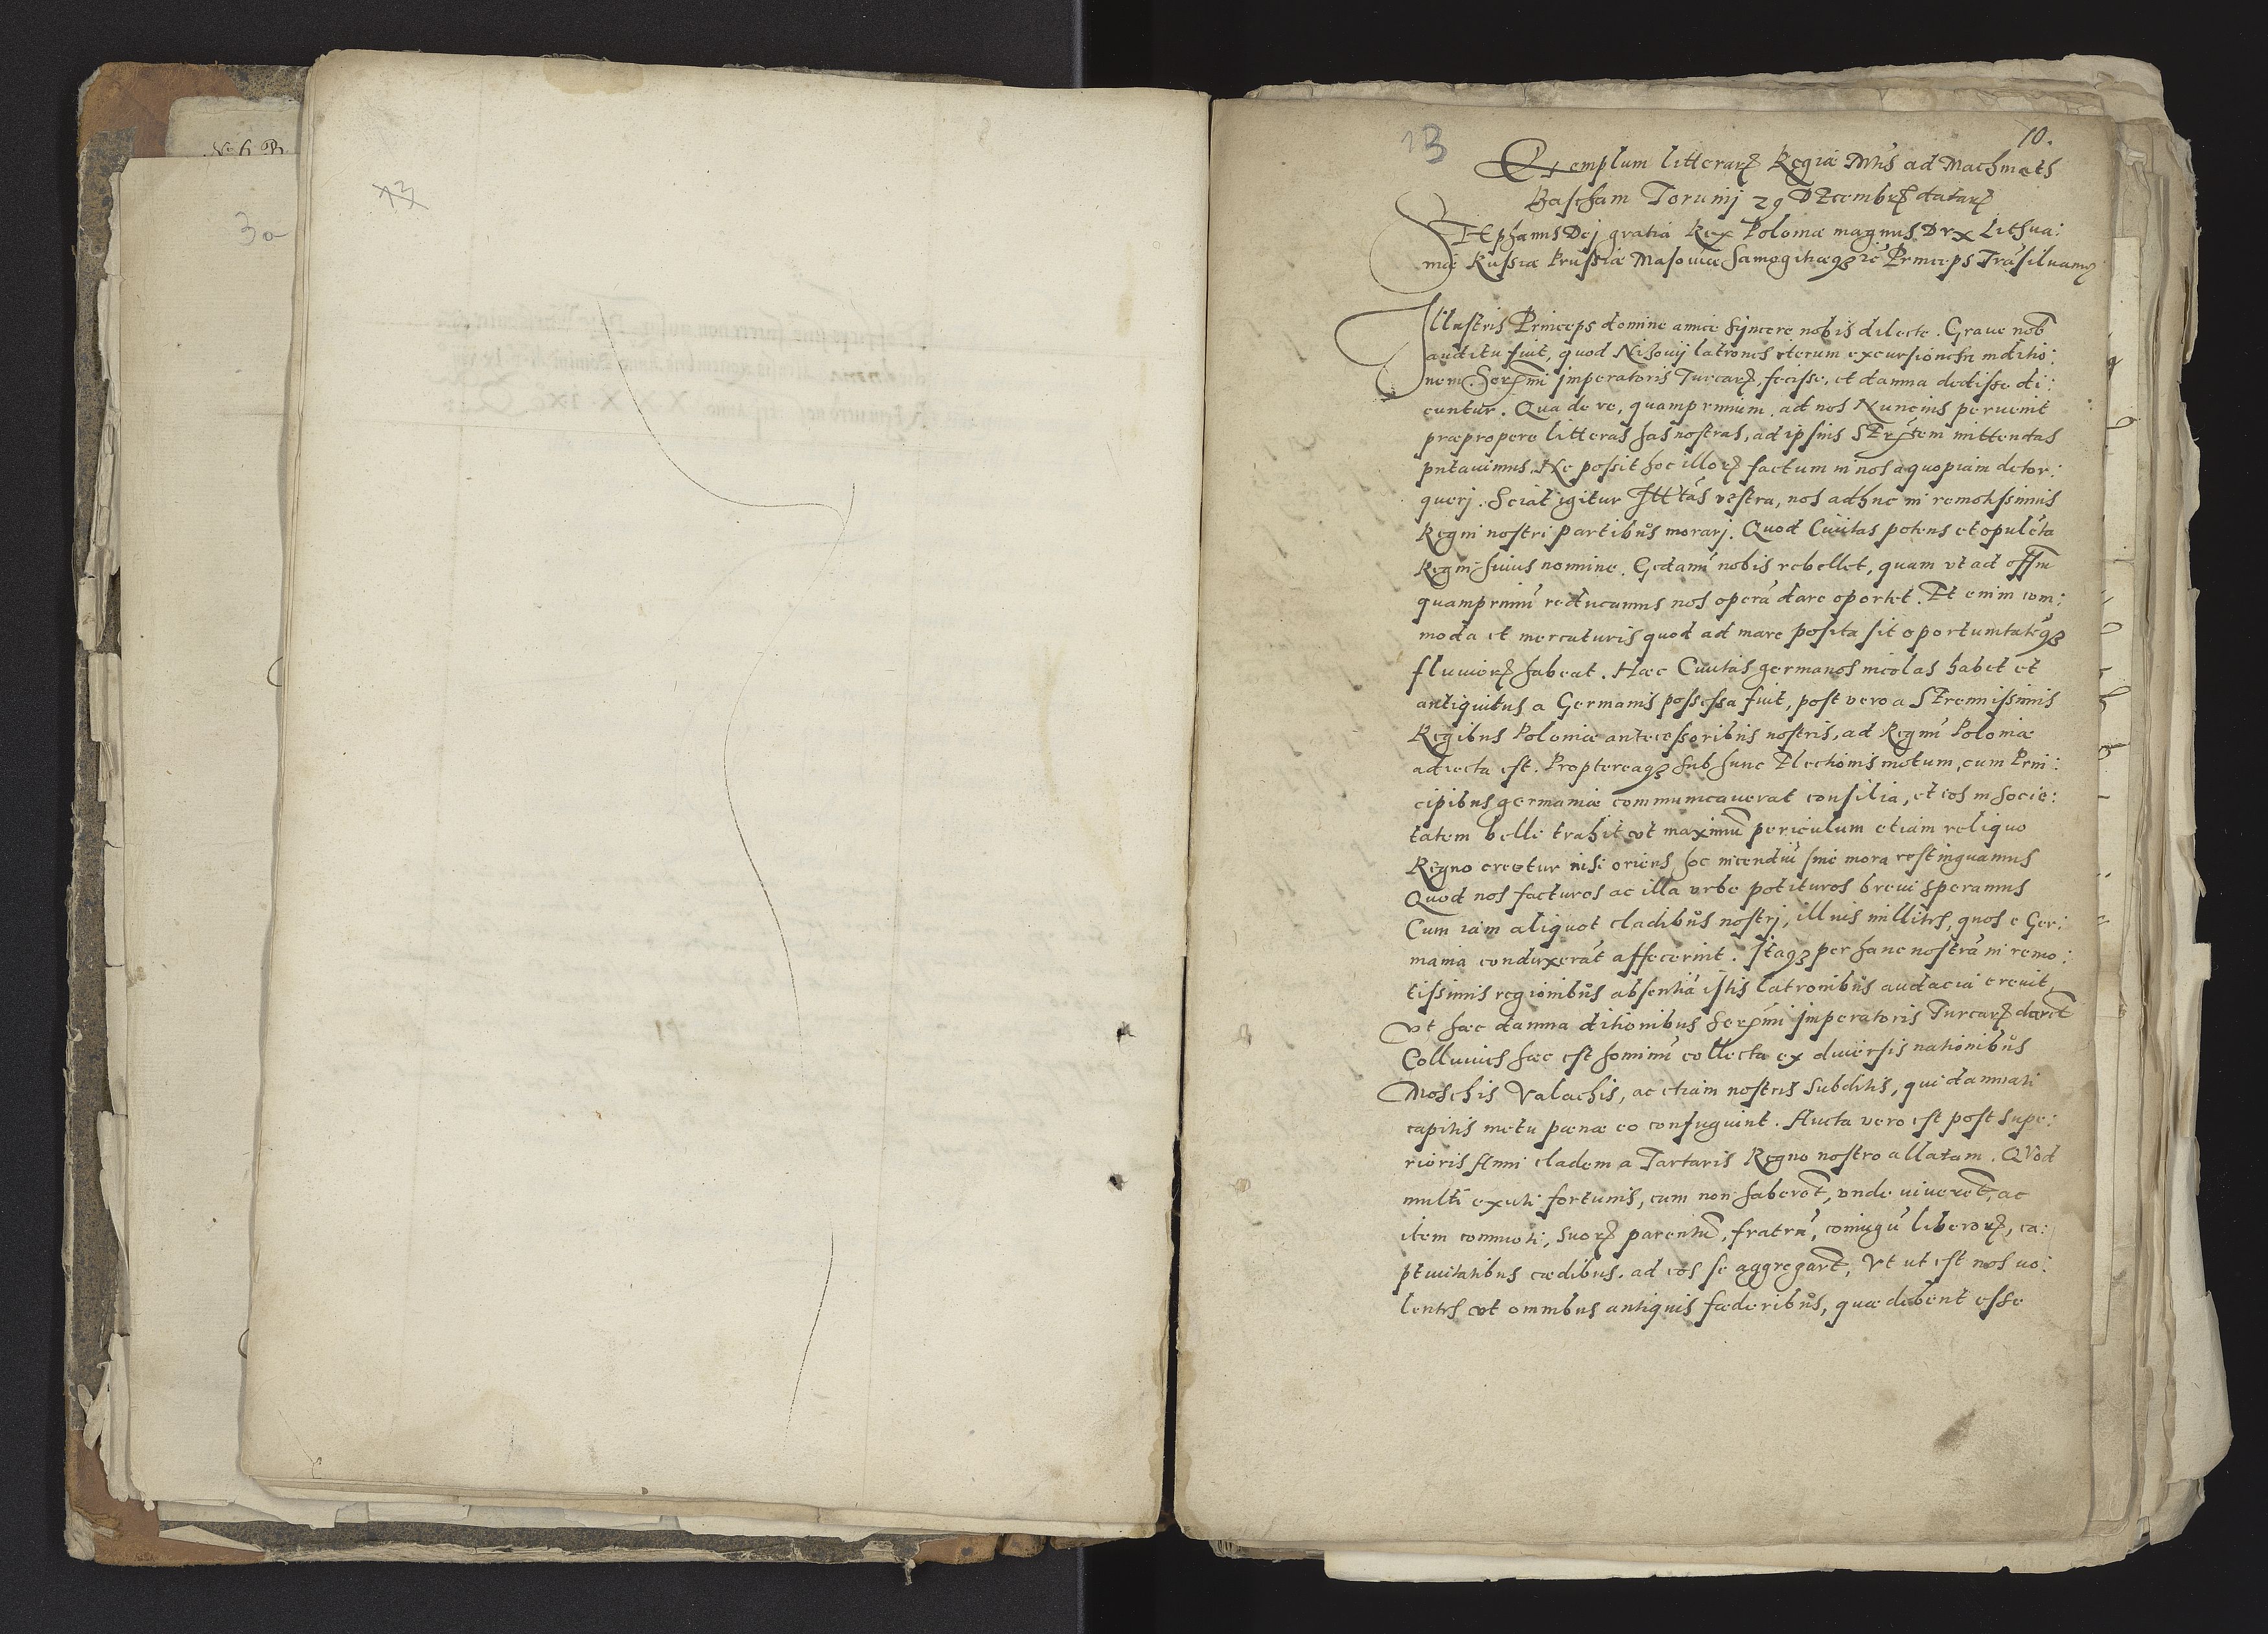 No 6 B
3a
13
13
10.
Exemplum litterarꝝ Regiæ Mtis ad Machmeth
Bascham Torunij 29 Decembrꝭ datarꝝ
Stephanus Dej gratia Rex Poloniæ magnus Dvx Lithua:
niæ Russiæ Prussiæ Masouiæ Samogitiæqꝫ ꝛc Princeps Trãsiluaniꝭ
Illustris Princeps domine amice syncere nobis dilecte. Graue nob̃
auditu fuit, quod Nisouij latrones iterum excursiones in ditio:
nem Serꝰmi Imperatoris Turcarꝝ, fecisse, et damna dedisse di:
cuntur. Qua de re, quamprimum ad nos Nuncius peruenit
præpropere litteras has nostras, ad ipsius Sertem mittendas
putauimus. Ne possit hoc illorꝝ factum in nos a quopiam detor:
querj. Sciat igitur Illtas vestra, nos adhuc in remotissimis
Regni nostri partibus morarj. Quod Ciuitas potens et opulẽta
Regni huius nomine. Gedanũ nobis rebellet, quam vt ad offm
quamprimũ reducamus nos operã dare oportet. Et enim com:
moda et mercaturis quod ad mare posita sit oportunitatẽqꝫ
fluuiorꝝ habeat. Hæc Ciuitas germanos incolas habet et
antiquitus a Germanis possessa fuit, post vero a Serennissimis
Regibus Poloniæ antecessoribus nostris, ad Regnũ Poloniæ
adiecta est. Proptereaqꝫ sub hunc Electionis motum, cum Prin:
cipibus germaniæ communicauerat consilia, et eos in socie:
tatem belli trahit vt maximũ periculum etiam reliquo
Regno creetur nisi oriens hoc incendiũ sine mora restinguamus
Quod nos facturos ac illa vrbe potituros breui speramus
Cum iam aliquot cladibus nostrj, illius millites, quos e Ger:
mania conduxerãt affecerint. Itaqꝫ per hanc nostrã in remo:
tissimis regionibus absentiã istis latronibus audacia creuit,
vt hæc damna ditionibus Serꝰmi Imperatoris Turcarꝝ darẽt
Colluuies hæc est hominũ collecta ex diuersis nationibus
Moschis Valachis, ac etiam nostris subditis, qui damnati
capitis metu pænæ eo confugiunt. Aucta vero est post supe:
rioris Anni cladem a Tartaris Regno nostro allatam. Qvod
multi exuti fortunis, cum non haberẽt, vnde viuerẽt, ac
item commoti, suorꝝ parentũ, fratrũ, coniugũ liberorꝝ, ca:
ptiuitatibus cædibus, ad eos se aggregarẽt, Vt ut est nos uo:
lentes vt omnibus antiquis fæderibus, quæ debent esse